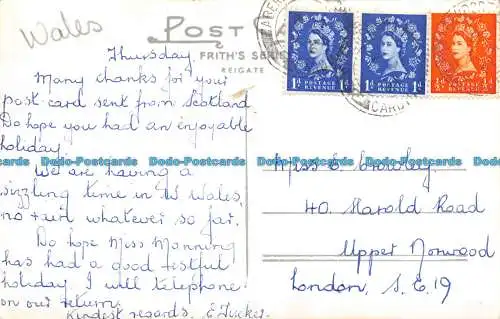 Wales
POST
FRITH'S SERIES
REIGATE
Thursday.
Many thanks for your
post card sent from Scotland
Do hope you had an enjoyable
holiday.
We are having a
sizzling time in W Wales,
no rain whatever so far.
Do hope Miss Manning
has had a good restful
holiday. I will telephone
on our return.
Kindest regards. E. Tucker.
1D POSTAGE REVENUE 1D
1D POSTAGE REVENUE 1D
½D POSTAGE REVENUE ½D
Miss E Crowley.
40. Harold Road
Upper Norwood
London, S.E.19
Dodo-Postcards Dodo-Postcards Dodo-Postcards Dodo-Postcards